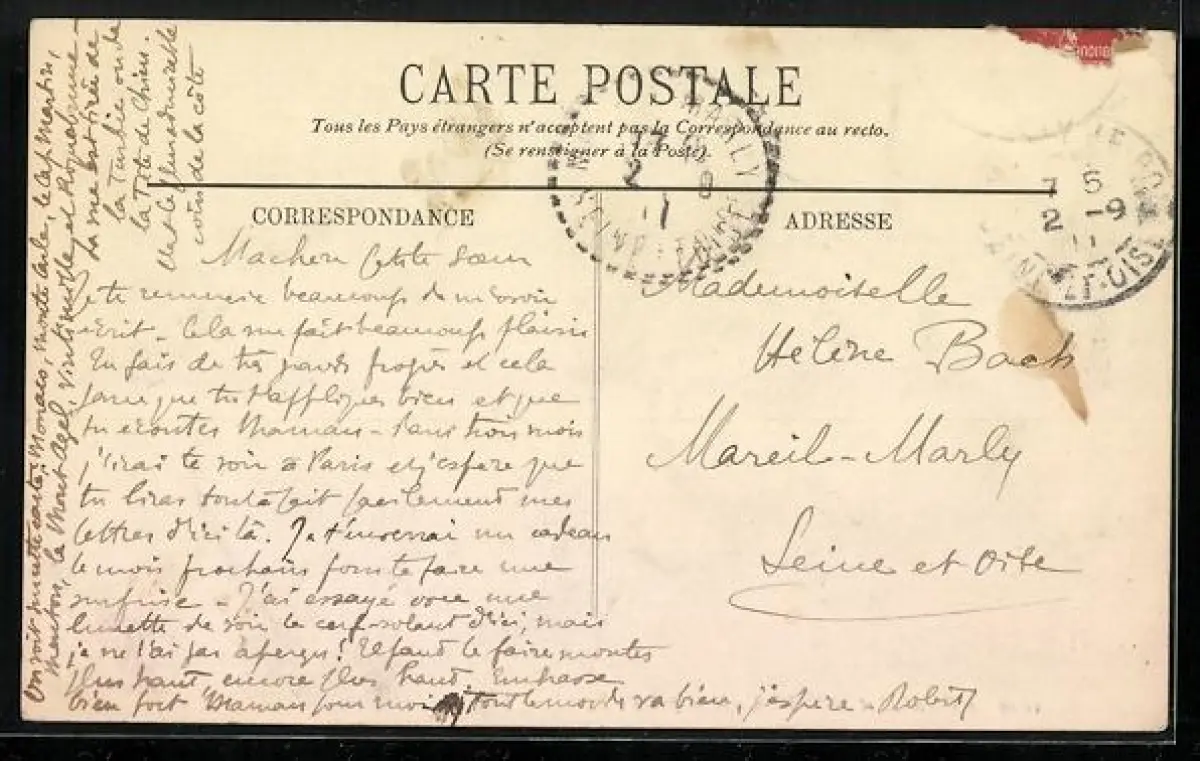 CARTE POSTALE
Tous les Pays étrangers n'acceptent pas la Correspondance au recto.
(Se renseigner à la Poste).
CORRESPONDANCE
Ma chère petite sœur
Je te remercie beaucoup de m'avoir
écrit - Cela me fait beaucoup plaisir
Tu fais de très grands progrès et cela
parce que tu t'appliques bien et que
tu écoutes Maman - Dans trois mois
j'irai te voir à Paris et j'espère que
tu liras tout à fait facilement mes
lettres d'ici là. Je t'enverrai un cadeau
le mois prochain pour te faire une
surprise - J'ai essayé avec une
lunette de voir le cerf-volant d'ici, mais
je ne l'ai pas aperçu! Il faut le faire monter
plus haut encore plus haut. Embrasse
bien fort Maman pour moi, tout le monde va bien, j'espère - Robert
On voit sur cette carte, Monaco, Monte Carlo, le Cap Martin,
Menton, le Mont Agel, Vintimille, et Roquebrune -
La vue est tirée de
la Turbie ou de
la Tête de Chien.
C'est le plus admirable
coin de la côte
ADRESSE
Mademoiselle
Hélène Bach
Mareil-Marly
Seine et Oise
7 S
2 -9
11
17
2
11